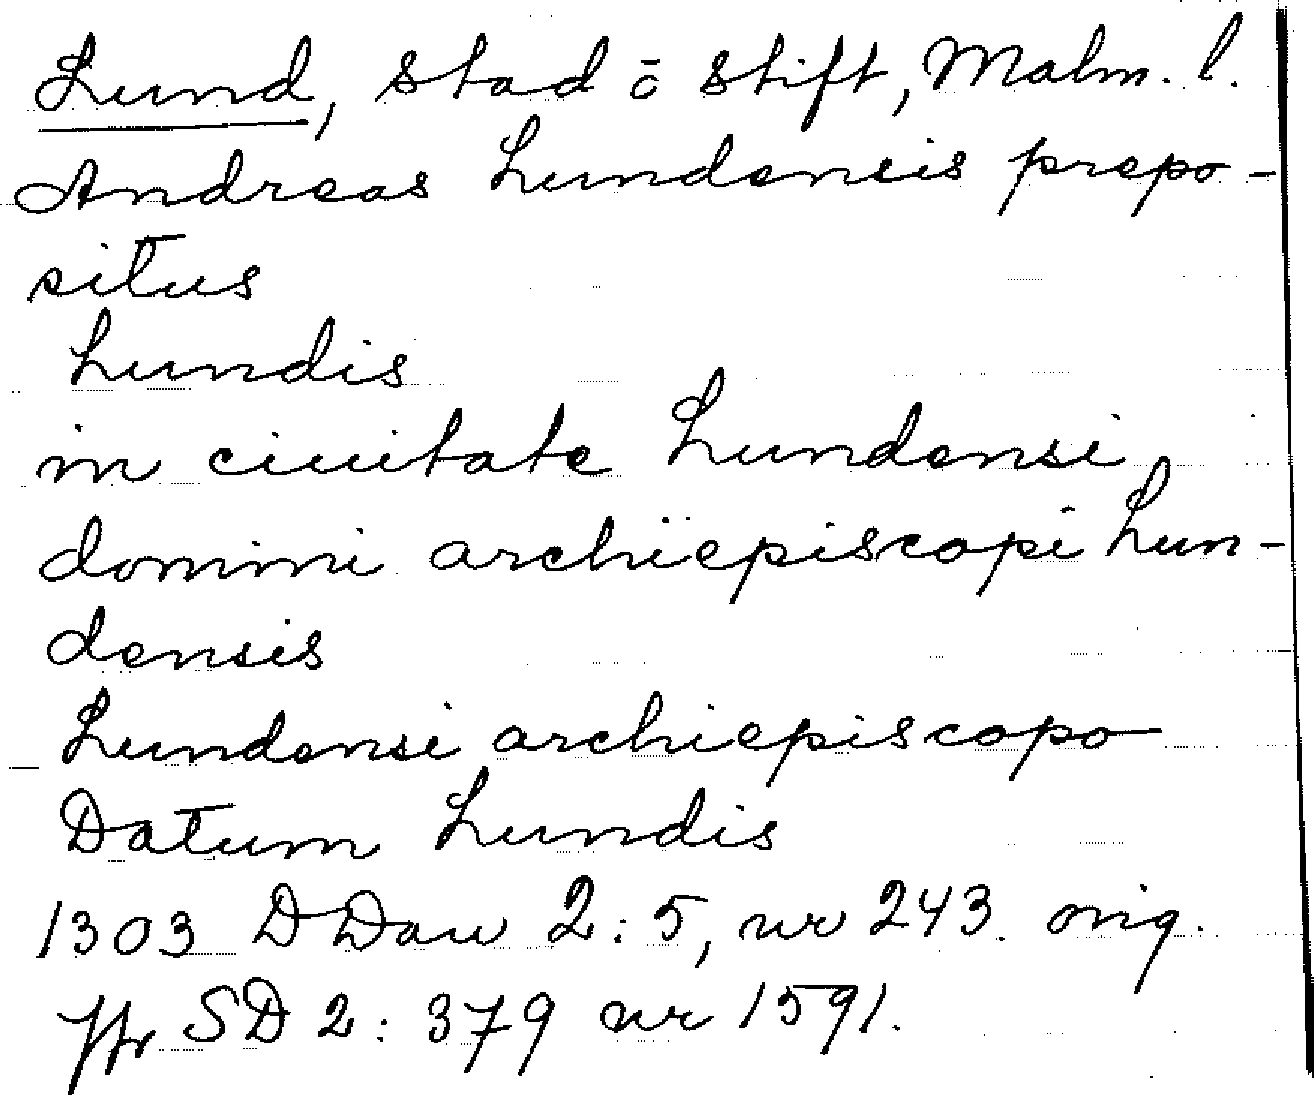 Lund, stad ō stift, Malm. l.
Andreas Lundensis prepo-
situs
Lundis
in ciuitate Lundensi
domini archiepiscopi Lun-
densis
Lundensi archiepiscopo
Datum Lundis
1303 DDan 2:5, nr 243. orig.
Jfr SD 2: 379 nr 1591.